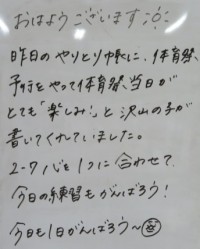 おはようございます
昨日のやりとり帳に、体育祭、
予行をやって体育祭、当日が
とても「楽しみ!」と沢山の子が
書いてくれていました。
2-7 心を1つに合わせて
今日の練習もがんばろう!
今日も1日がんばろう〜